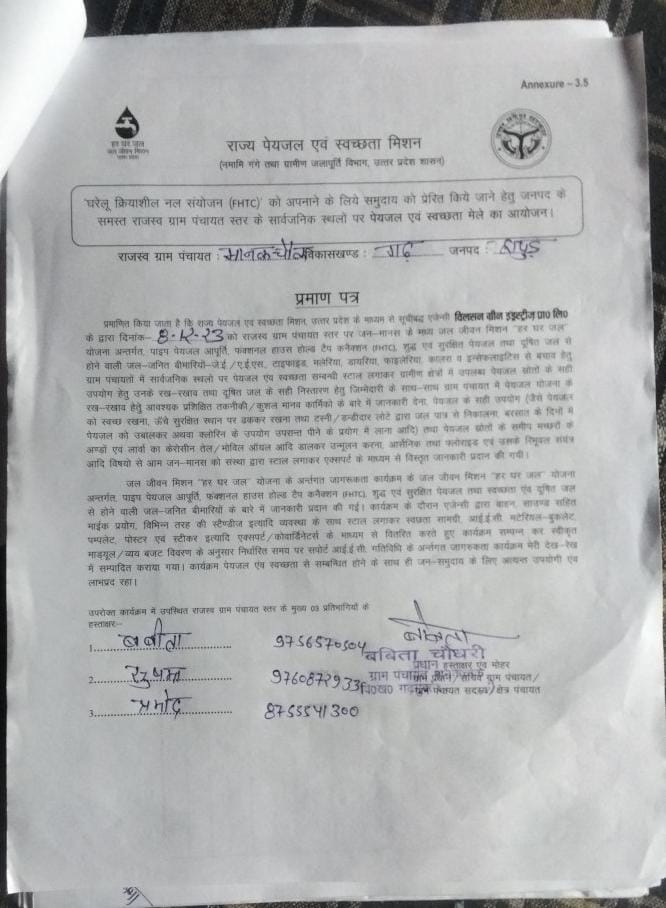 Annexure – 3.5
हर घर जल
जल जीवन मिशन
राज्य पेयजल एवं स्वच्छता मिशन
(नमामि गंगे तथा ग्रामीण जलापूर्ति विभाग, उत्तर प्रदेश शासन)
'घरेलू क्रियाशील नल संयोजन (FHTC)' को अपनाने के लिये समुदाय को प्रेरित किये जाने हेतु जनपद के
समस्त राजस्व ग्राम पंचायत स्तर के सार्वजनिक स्थलों पर पेयजल एवं स्वच्छता मेले का आयोजन।
राजस्व ग्राम पंचायत : मानकचौक विकासखण्ड : गढ़ जनपद : हापुड़
प्रमाण पत्र
प्रमाणित किया जाता है कि राज्य पेयजल एवं स्वच्छता मिशन, उत्तर प्रदेश के माध्यम से सूचीबद्ध एजेन्सी विलसन ग्रीन इंडस्ट्रीज़ प्रा० लि०
के द्वारा दिनांक- 8-12-23 को राजस्व ग्राम पंचायत स्तर पर जन-मानस के मध्य जल जीवन मिशन "हर घर जल"
योजना अन्तर्गत, पाइप पेयजल आपूर्ति, फंक्शनल हाउस होल्ड टैप कनैक्शन (FHTC), शुद्ध एवं सुरक्षित पेयजल तथा दूषित जल से
होने वाली जल-जनित बीमारियों-जे.ई./ए.ई.एस, टाइफाइड, मलेरिया, डायरिया, फाइलेरिया, कालरा व इन्सेफलाइटिस से बचाव हेतु
ग्राम पंचायतों में सार्वजनिक स्थलों पर पेयजल एंव स्वच्छता सम्बन्धी स्टाल लगाकर ग्रामीण क्षेत्रों में उपलब्ध पेयजल स्रोतों के सही
उपयोग हेतु उनके रख-रखाव तथा दूषित जल के सही निस्तारण हेतु जिम्मेदारी के साथ-साथ ग्राम पंचायत में पेयजल योजना के
रख-रखाव हेतु आवश्यक प्रशिक्षित तकनीकी/कुशल मानव कार्मिको के बारे में जानकारी देना, पेयजल के सही उपयोग (जैसे पेयजल
को स्वच्छ रखना, ऊँचे सुरक्षित स्थान पर ढककर रखना तथा टस्नी/डन्डीदार लोटे द्वारा जल पात्र से निकालना, बरसात के दिनों में
पेयजल को उबालकर अथवा क्लोरिन के उपयोग उपरान्त पीने के प्रयोग में लाना आदि) तथा पेयजल स्रोतों के समीप मच्छरों के
अण्डों एवं लार्वा का केरोसीन तेल/मोविल ऑयल आदि डालकर उन्मूलन करना, आर्सेनिक तथा फ्लोराइड एवं उसके रिमूवल संयंत्र
आदि विषयो से आम जन-मानस को संस्था द्वारा स्टाल लगाकर एक्सपर्ट के माध्यम से विस्तृत जानकारी प्रदान की गयी।
जल जीवन मिशन "हर घर जल" योजना के अर्न्तगत जागरूकता कार्यक्रम के जल जीवन मिशन "हर घर जल" योजना
अन्तर्गत, पाइप पेयजल आपूर्ति, फंक्शनल हाउस होल्ड टैप कनैक्शन (FHTC), शुद्ध एवं सुरक्षित पेयजल तथा स्वच्छता एंव दूषित जल
से होने वाली जल-जनित बीमारियों के बारे में जानकारी प्रदान की गई। कार्यक्रम के दौरान एजेन्सी द्वारा वाहन, साउण्ड सहित
माईक प्रयोग, विभिन्न तरह की स्टैण्डीज इत्यादि व्यवस्था के साथ स्टाल लगाकर स्वच्छता सामग्री, आई.ई.सी. मटेरियल-बुकलेट,
पम्पलेट, पोस्टर एवं स्टीकर इत्यादि एक्सपर्ट/कोवार्डिनेटर्स के माध्यम से वितरित करते हुए कार्यक्रम सम्पन्न कर स्वीकृत
माड्यूल/व्यय बजट विवरण के अनुसार निर्धारित समय पर सपोर्ट आई.ई.सी. गतिविधि के अर्न्तगत जागरूकता कार्यक्रम मेरी देख-रेख
में सम्पादित कराया गया। कार्यक्रम पेयजल एंव स्वच्छता से सम्बन्धित होने के साथ ही जन-समुदाय के लिए अत्यन्त उपयोगी एंव
लाभप्रद रहा।
उपरोक्त कार्यक्रम में उपस्थित राजस्व ग्राम पंचायत स्तर के मुख्य 03 प्रतिभागियों के
हस्ताक्षर:-
1. बबीता 9756570504
बबिता
बबिता चौधरी
प्रधान हस्ताक्षर एवं मोहर
2. 9760872933
ग्राम पंचायत सचिव ग्राम पंचायत/
वि०ख० ग्राम पंचायत सदस्य/क्षेत्र पंचायत
3. प्रमोद 8755541300